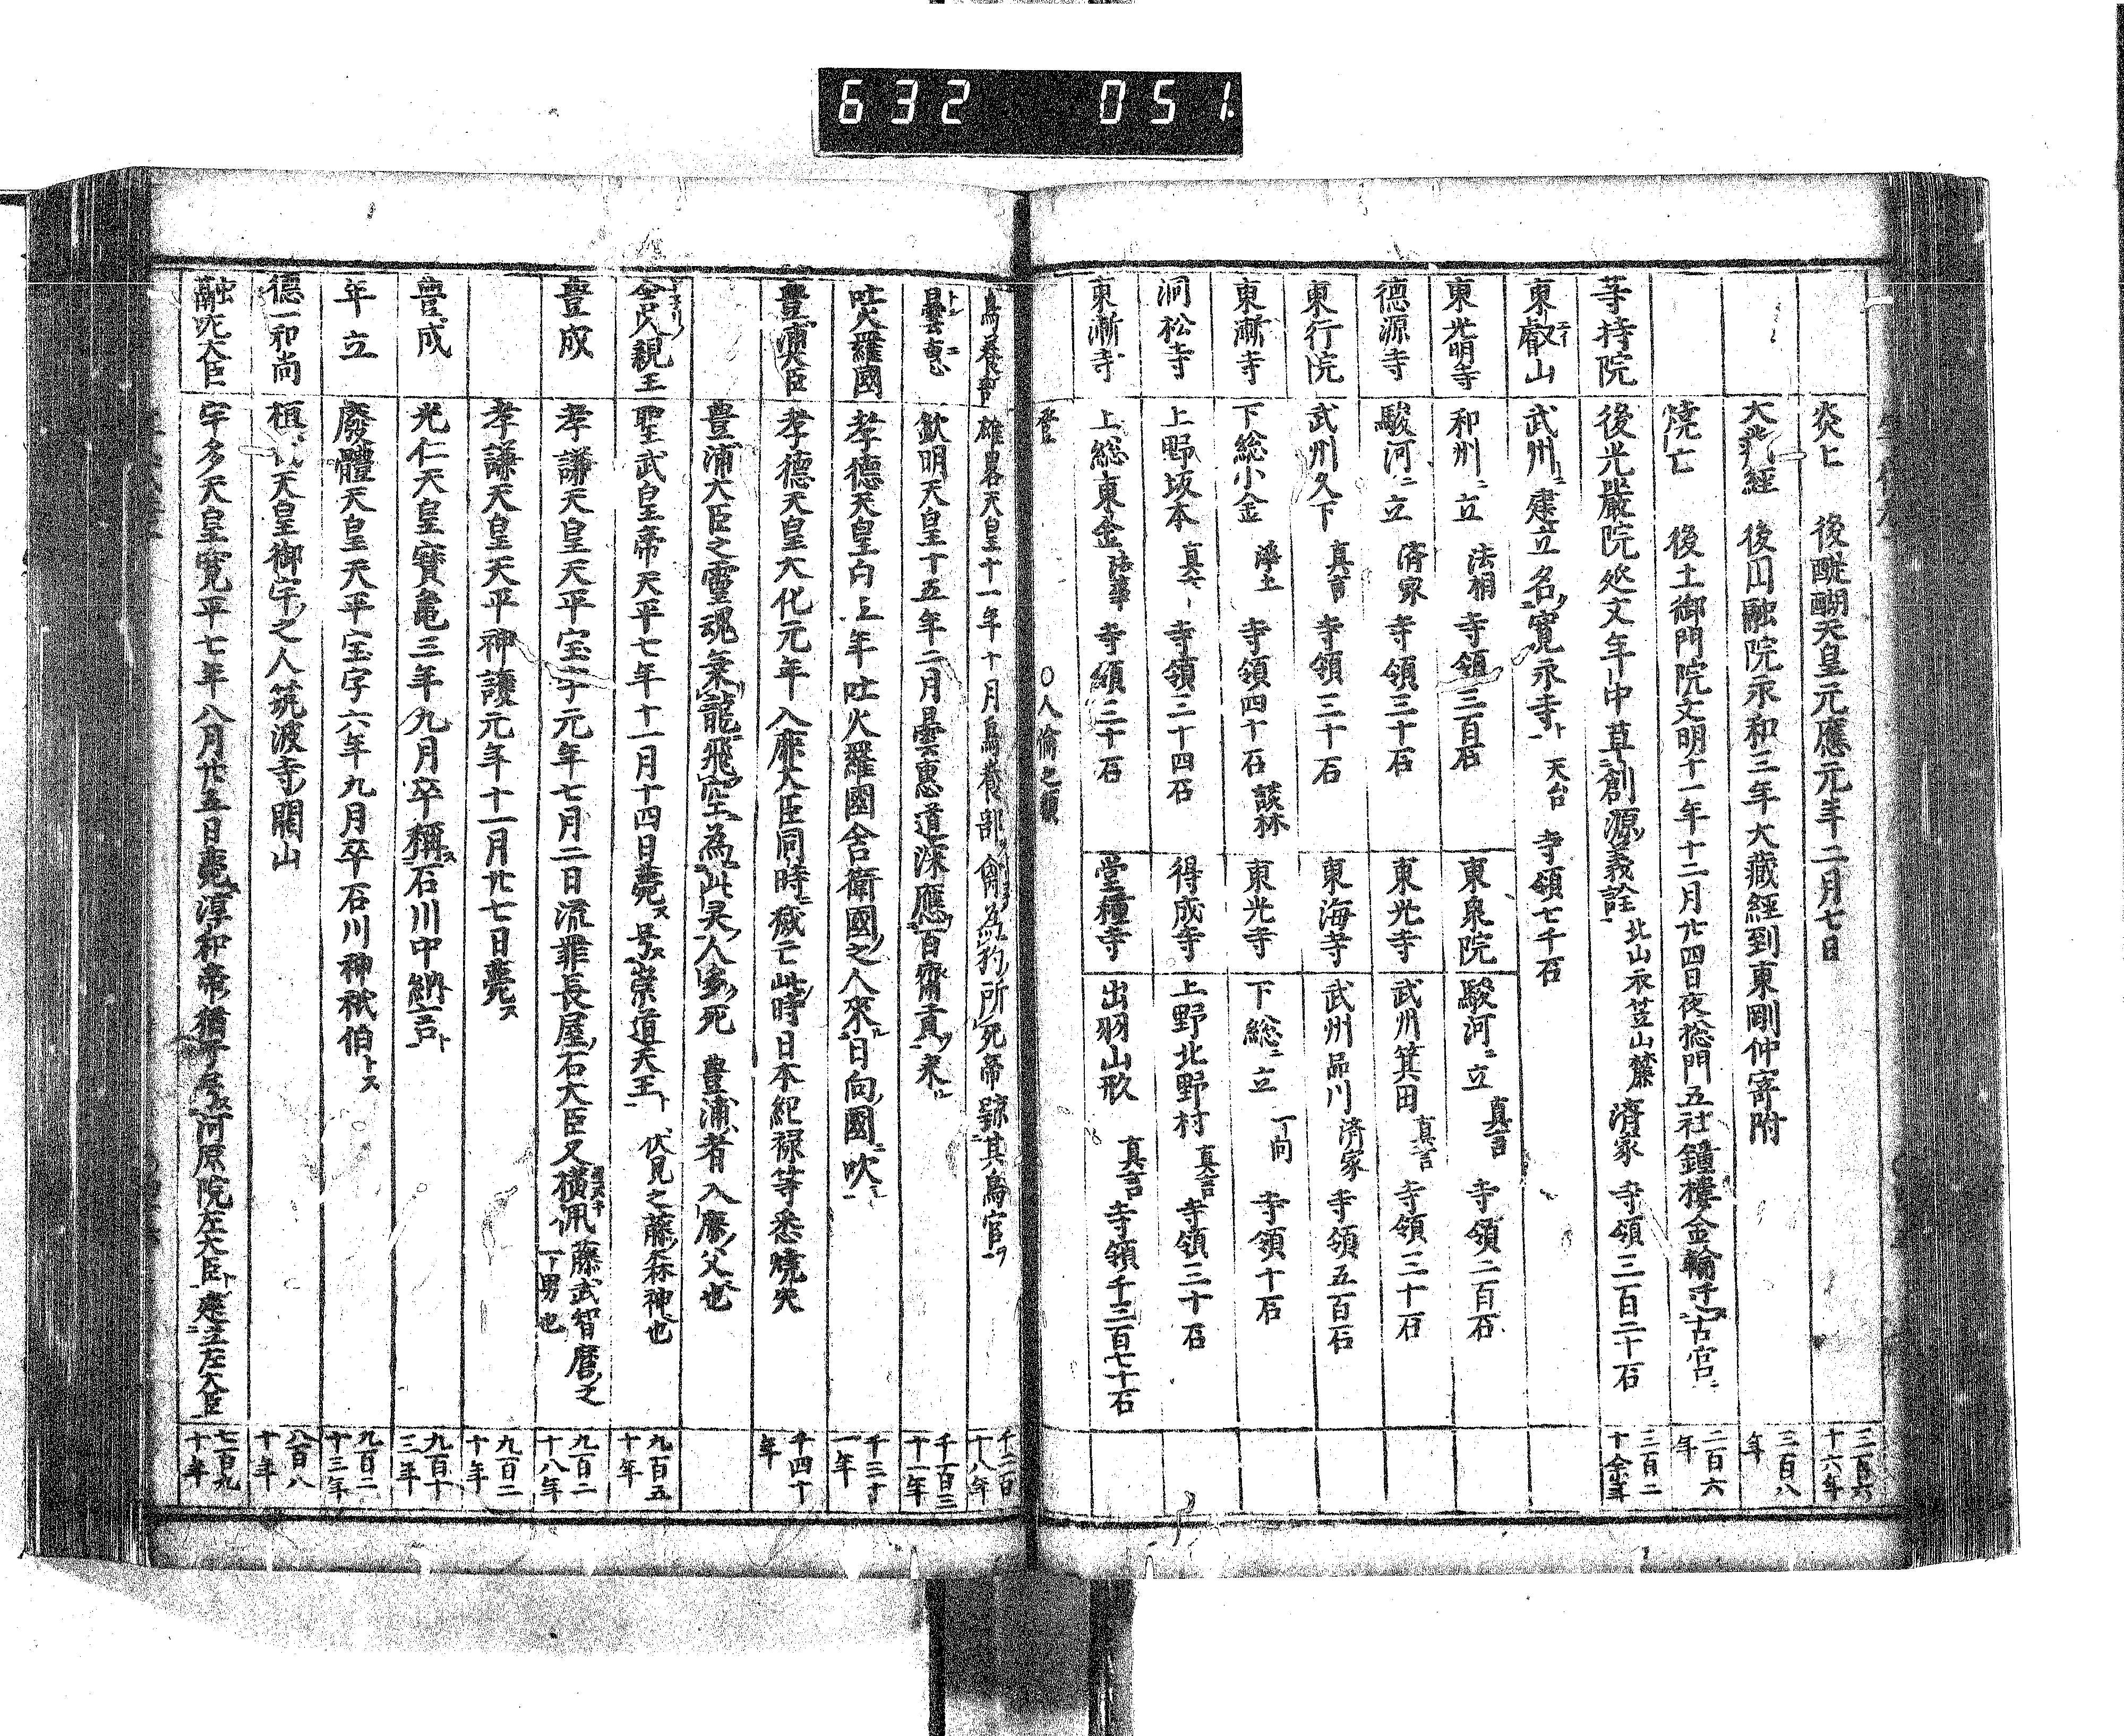 632 051
炎亡 後醍醐天皇元應元年二月七日 三百六十六年
大蔵経 後円融院永和三年大藏経到東剛仲寄附 三百八年
焼亡 後土御門院文明十一年十二月廿四日夜㧾門五社鐘樓金輪 古宮ニ 二百六年
等持院 後光嚴院延文年中草創源ノ義詮 北山衣笠山麓 濟家 寺領三百二十石 三百二十余年
東叡山 武州ニ建立名寛永寺ト 天台 寺領七千石
東光明寺 和州ニ立 法相 寺領三百石 東泉院 駿河ニ立 真言 寺領二百石
德源寺 駿河ニ立 済家 寺領三十石 東光寺 武州箕田 真言 寺領三十石
東行院 武州久下 真言 寺領三十石 東海寺 武州品川 済家 寺領五百石
東漸寺 下総小金 淨土 寺領四十石 談林 東光寺 下総ニ立 一向 寺領十石
洞松寺 上野坂本 真言 寺領二十四石 得成寺 上野北野村 真言 寺領三十石
東漸寺 上総東金 法華 寺領三十石 堂種寺 出羽山形 真言 寺領千三百七十石
〇人倫之類
鳥養部 雄畧天皇十一年十月鳥養部ノ禽為狗ノ所死帝跡其鳥官ヲ 千二百十八年
曇惠 欽明天皇十五年二月曇惠道深應百齊貢ノ来ル 千一百三十一年
吐火羅國 孝德天皇白上年吐火羅國舍衛國ノ之人來ル日向ノ國ニ吹ル 千三十一年
豊浦大臣 孝德天皇大化元年入鹿大臣同時滅亡此時日本紀禄等悉燒失 千四十年
豊浦大臣之靈魂乗龍飛空為此灵ノ人多死 豊浦ノ者入鹿ノ父也
舍人親王 聖武皇帝天平七年十一月十四日薨ス号ス崇道天王ト 伏見之藤ノ森神也 九百五十年
豊成 孝謙天皇天平宝字元年七月二日流罪長屋ノ石大臣又横佩 藤武智麿ノ之一男也 九百二十八年
孝謙天皇天平神護元年十一月廿七日薨ス 九百二十年
豊成 光仁天皇寳亀三年九月卒稱ス石川中納言ト 九百十三年
年立 廢體天皇天平宝字六年九月卒石川神祇伯トス 九百二十三年
德一和尚 桓 天皇御宇ノ之人筑波寺ノ開山 八百八十年
融左大臣 宇多天皇寛平七年八月廿五日薨淳和帝ノ猶子号河原院左大臣ト 左大臣 七百九十年